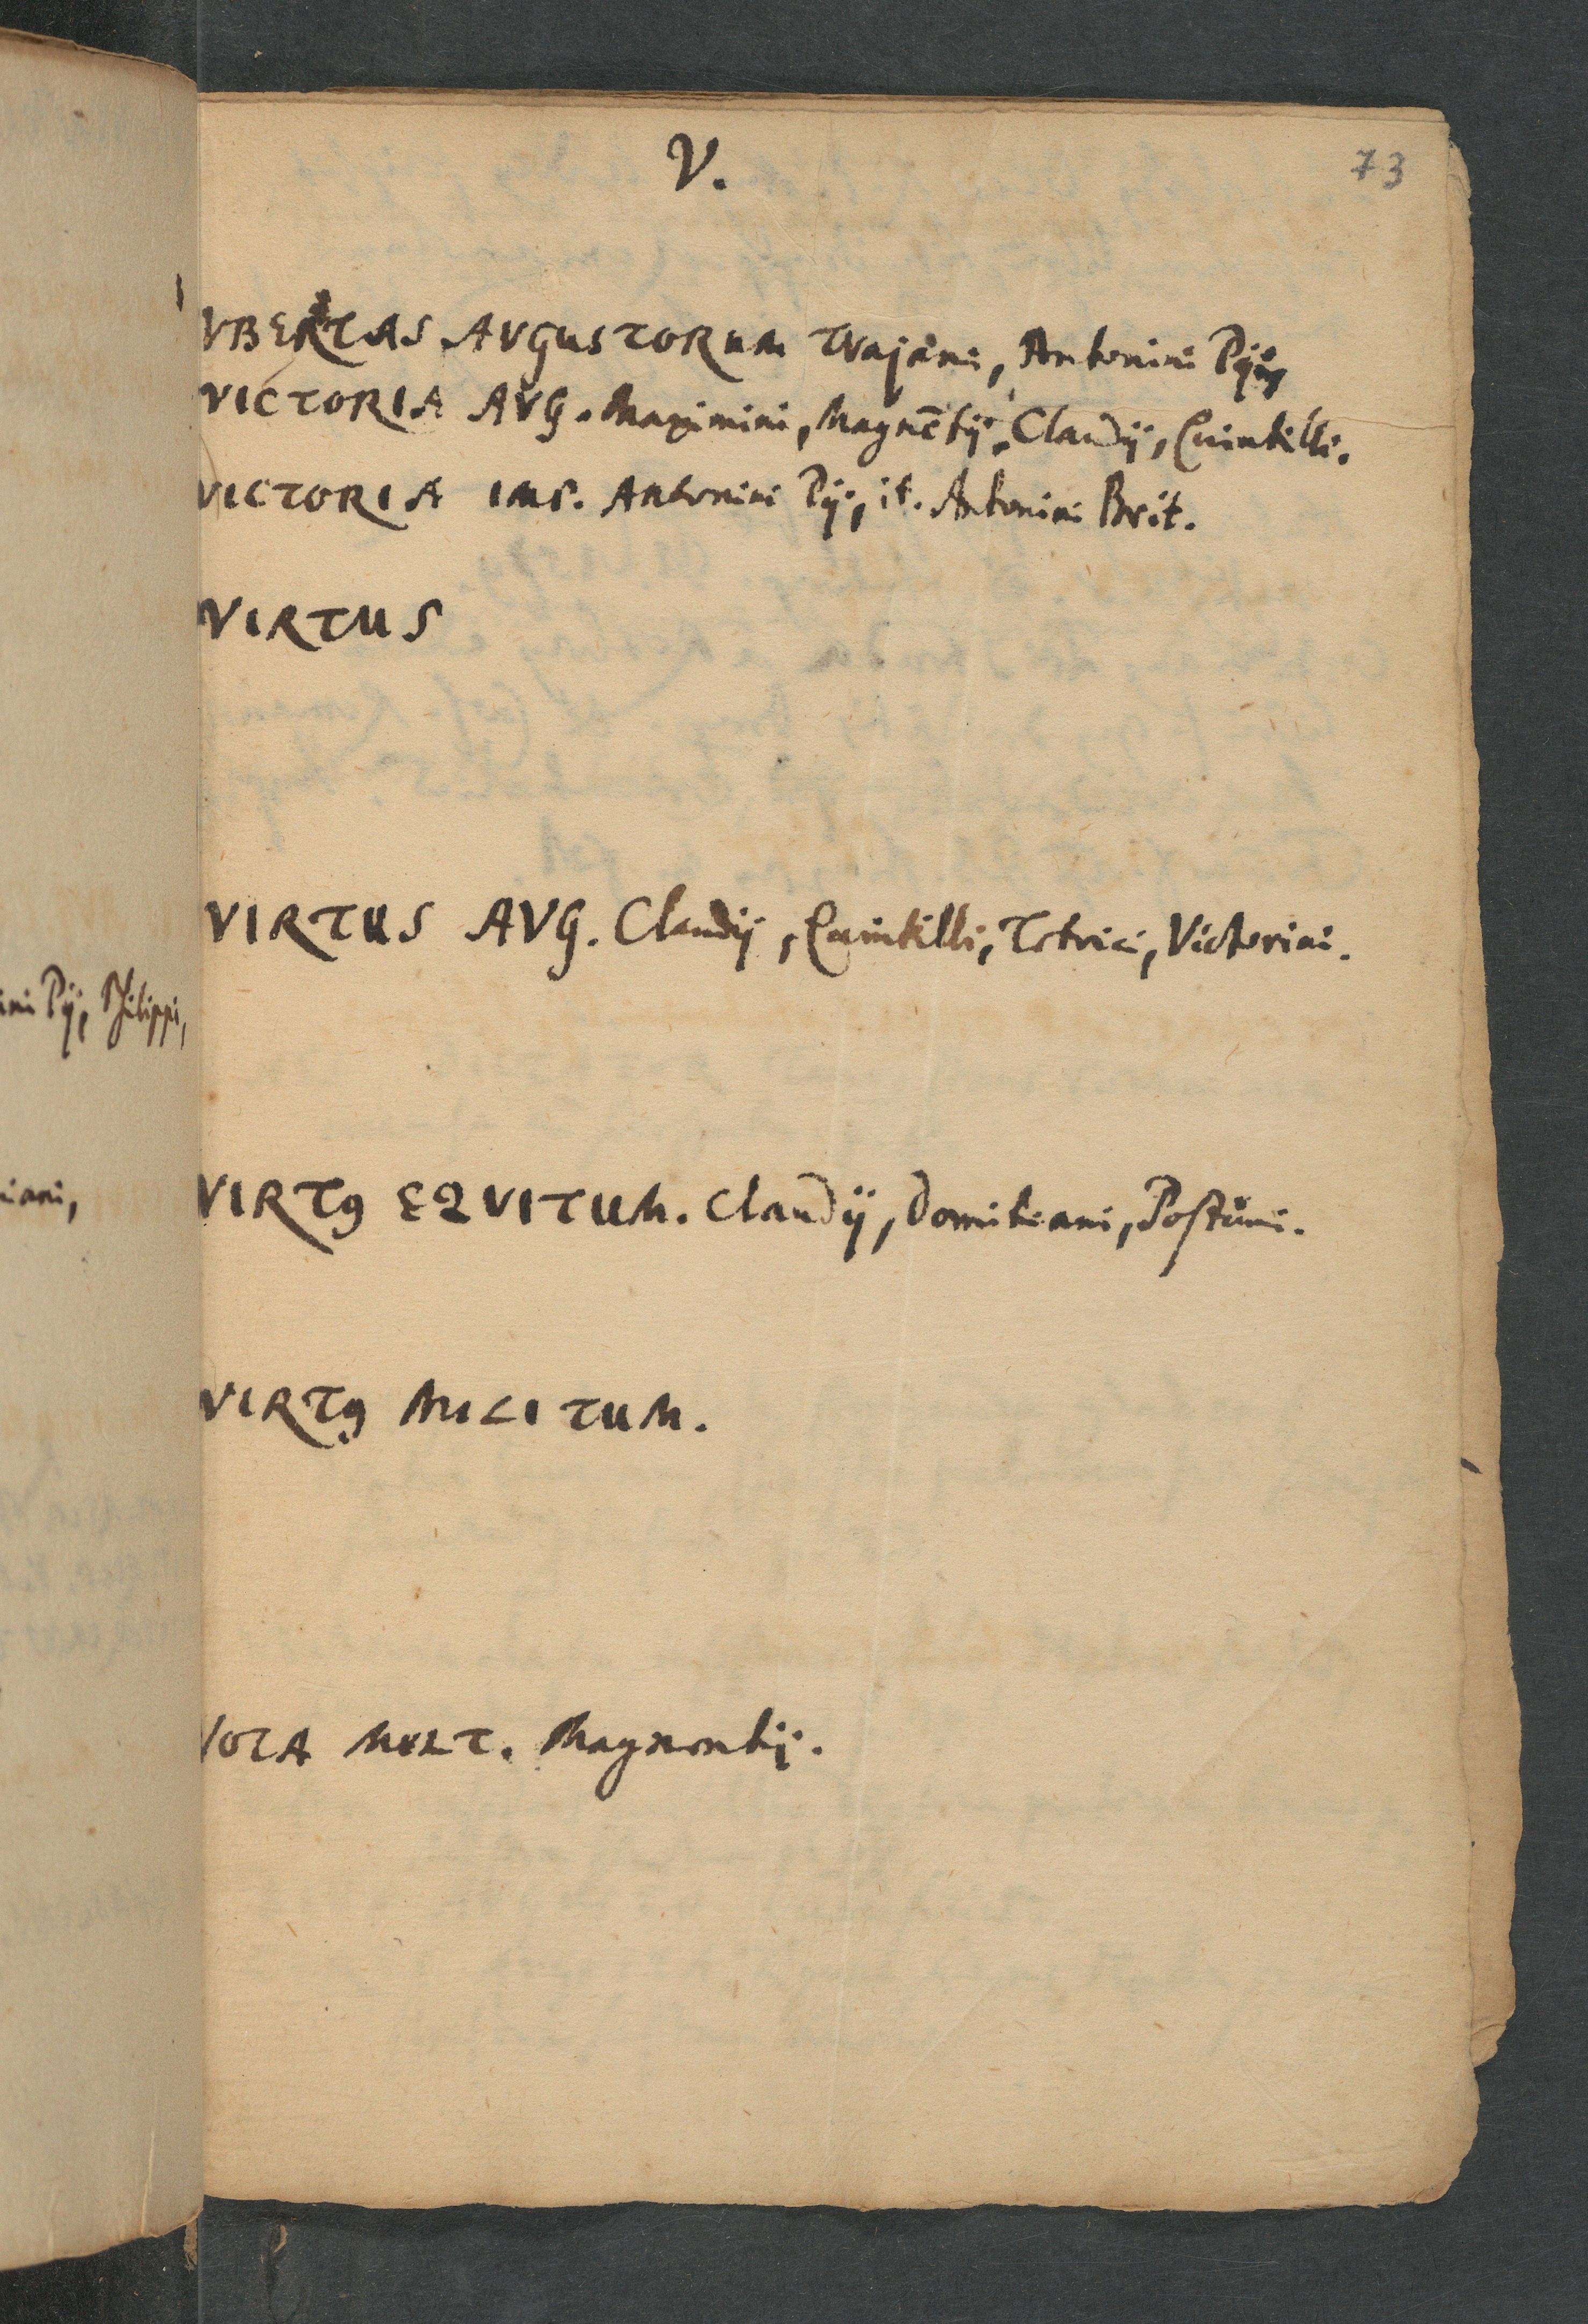 V.
73
VBERTAS AVGUSTORUM Trajani, Antonini Pij,
VICTORIA AVG. Maximini, Magnētij, Claudij, Quintilli.
VICTORIA IMP. Antonini Pij, it. Antonini Brit.
VIRTUS
VIRTUS AVG. Claudij, Quintilli, Tetrici, Victorini.
ini Pij, Philippi,
VIRTꝰ EQVITUM. Claudij, Domitiani, Postumi.
iani,
VIRTꝰ MILITUM.
VOTA MULT. Magnentij.